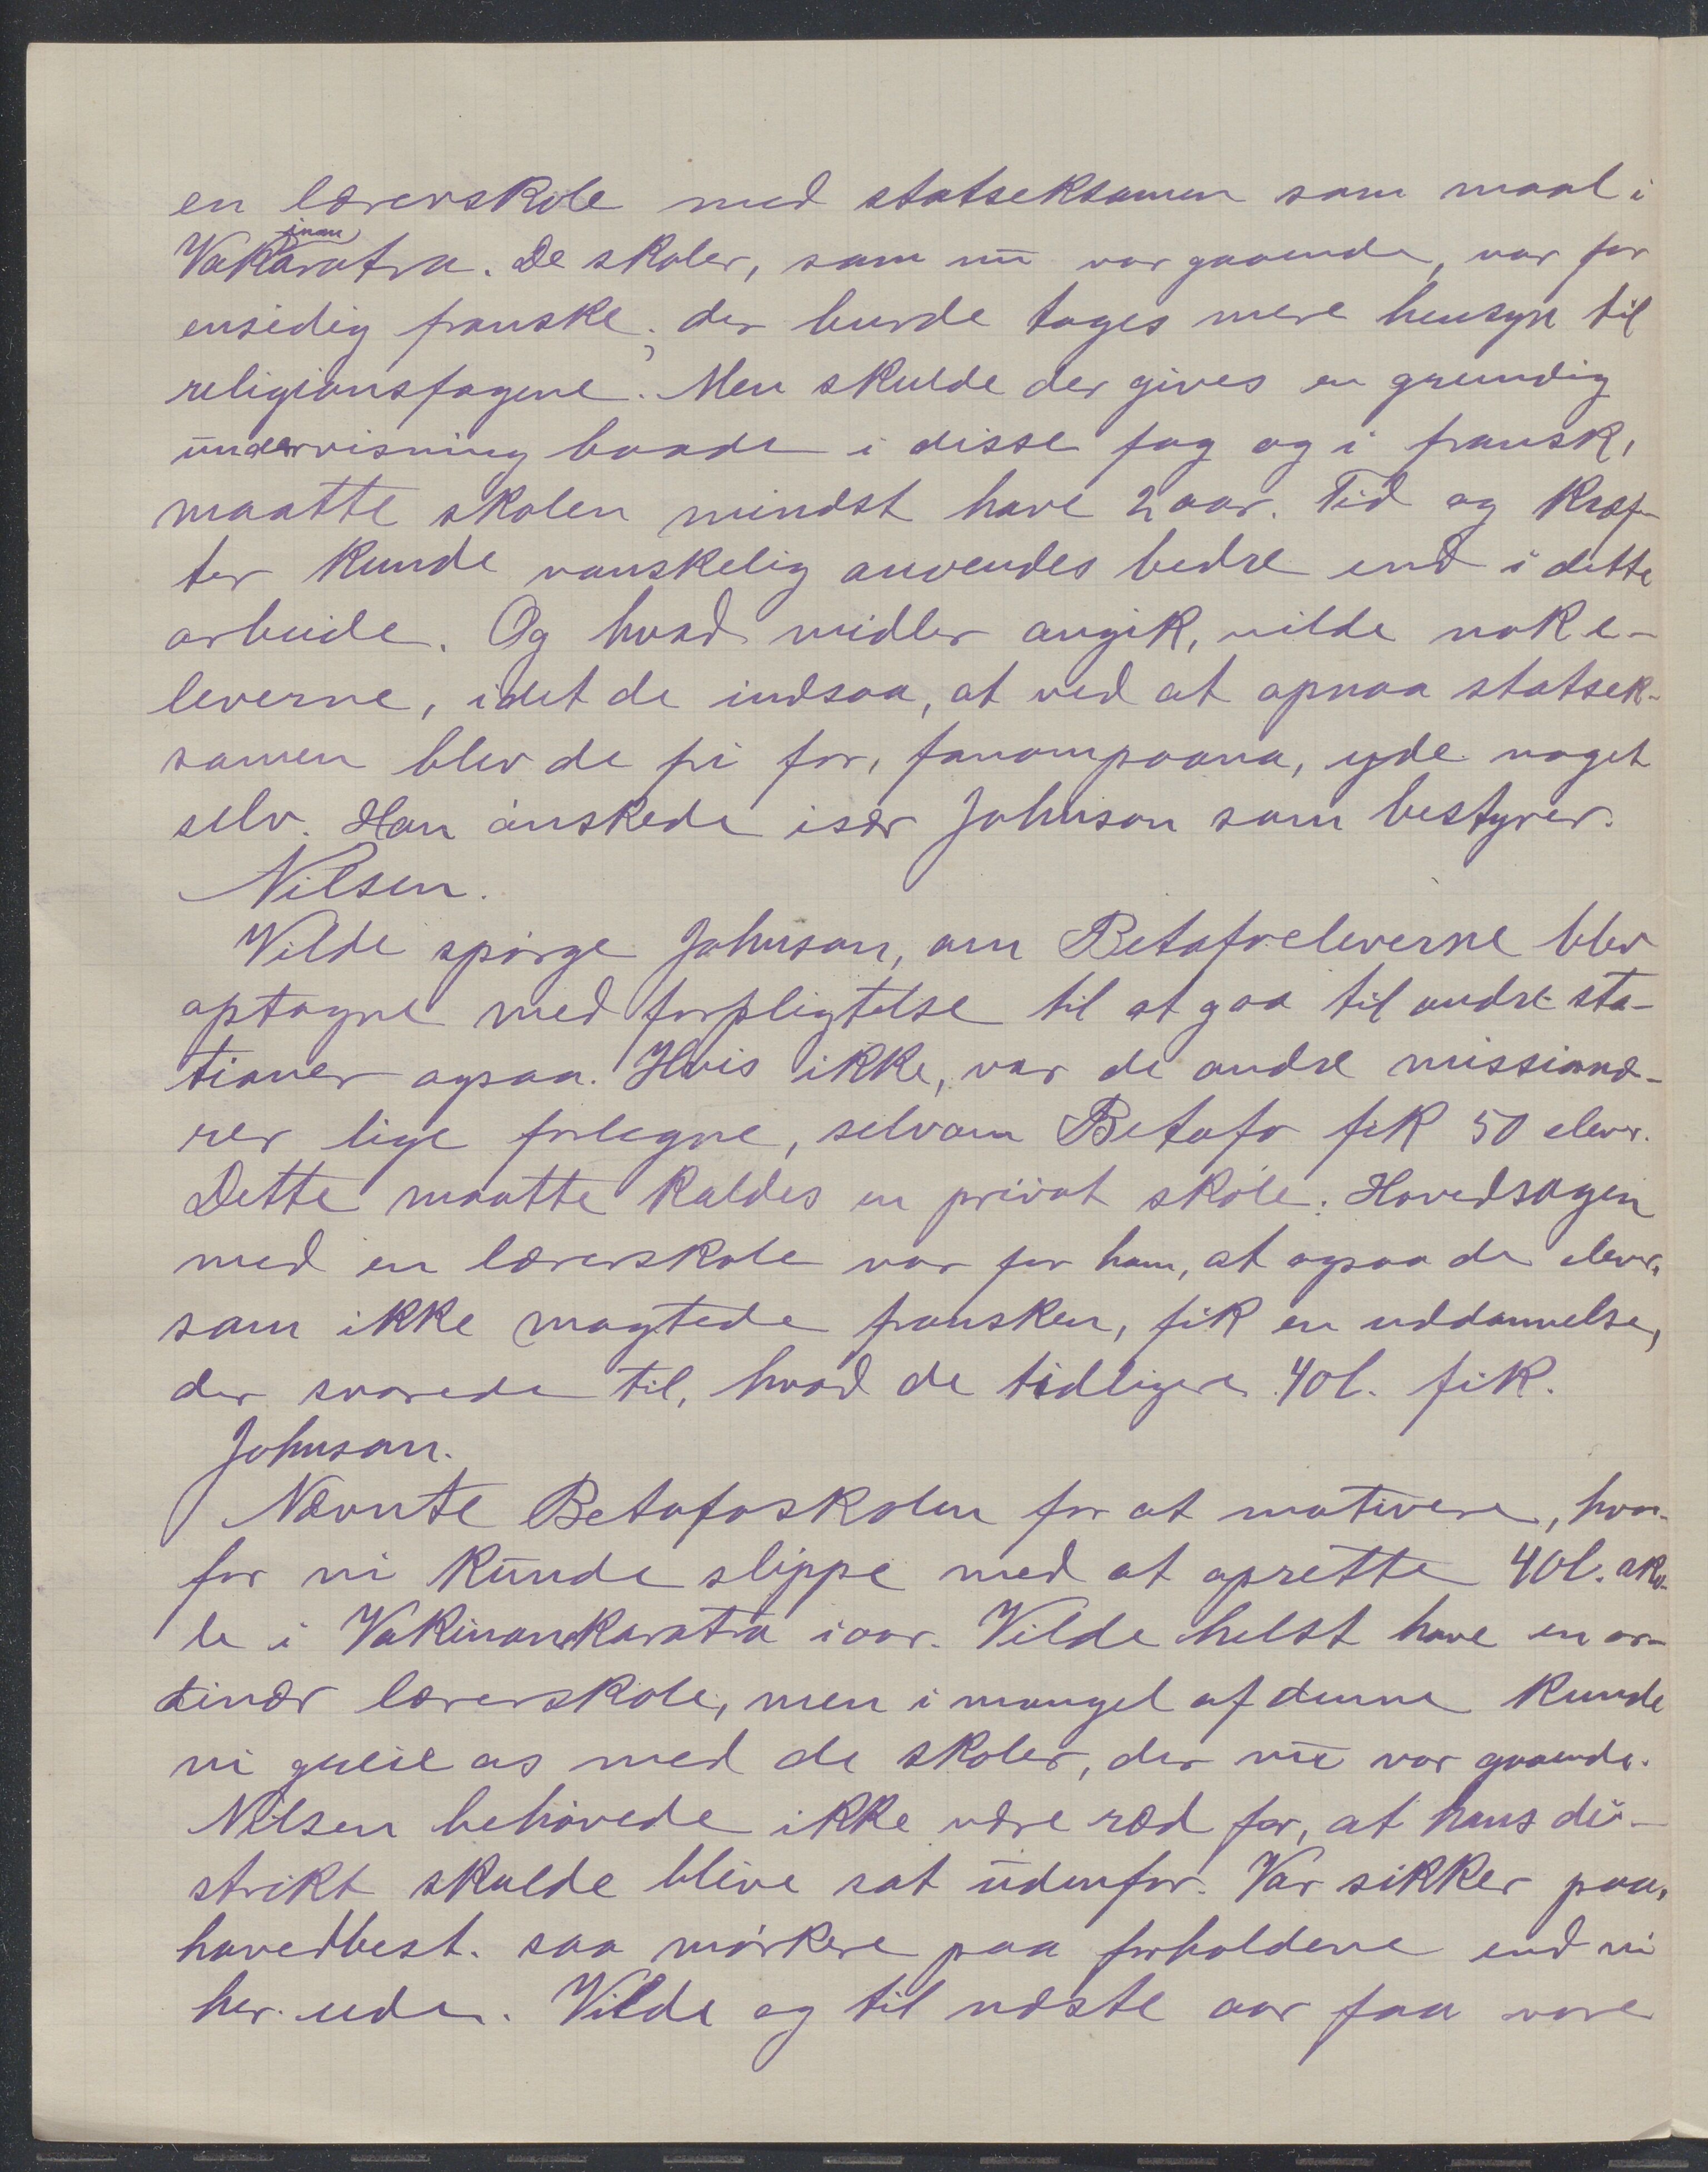 en lærerskole med statseksamen som maal i
Vakinankaratra. De skoler, som nu var gaaende, var for
ensidig franske; der burde tages mere hensyn til
religionsfagene. Men skulde der gives en grundig
undervisning baade i disse fag og i fransk,
maatte skolen mindst have 2 aar. Tid og kræf-
ter kunde vanskelig anvendes bedre end i dette
arbeide. Og hvad midler angik, vilde nok e-
leverne, idet de indsaa, at ved at opnaa statsek-
samen blev de fri for, fanompoana, yde noget
selv. Han ønskede især Johnson som bestyrer.
Nilsen.
Vilde spørge Johnson, om Betafoeleverne blev
optagne med forpligtelse til at gaa til andre sta-
tioner ogsaa. Hvis ikke, var de andre missionæ-
rer lige forlegne, selvom Betafo fik 50 elever.
Dette maatte kaldes en privat skole. Hovedsagen
med en lærerskole var for ham, at ogsaa de elever,
som ikke magtede fransken, fik en uddannelse,
der svarede til, hvad de tidligere 40l. fik.
Johnson.
Nævnte Betafoskolen for at motivere, hvor-
for vi kunde slippe med at oprette 40l. sko-
le i Vakinankaratra iaar. Vilde helst have en or-
dinær lærerskole, men i mangel af denne kunde
vi greie os med de skoler, der nu var gaaende.
Nilsen behøvede ikke være ræd for, at hans di-
strikt skulde blive sat udenfor. Var sikker paa,
hovedbest. saa mørkere paa forholdene end vi
her ude. Vilde og til næste aar faa vore